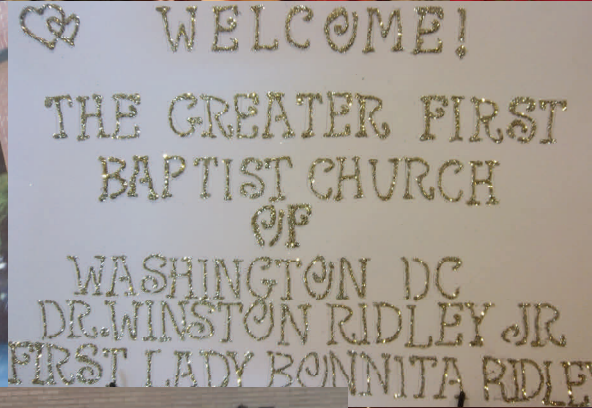 WELCOME!
THE GREATER FIRST
BAPTIST CHURCH
OF
WASHINGTON DC
DR. WINSTON RIDLEY JR
FIRST LADY BONNITA RIDLEY